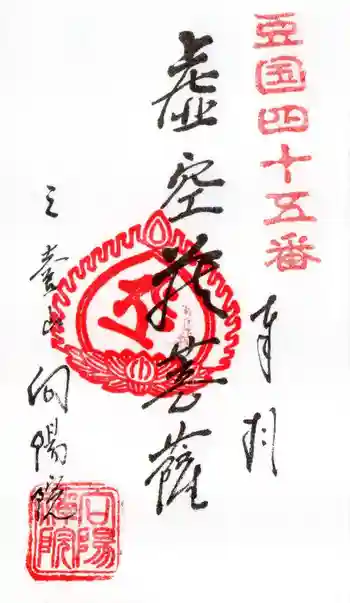 豆国四十五番
奉拝
虚空蔵菩薩
三養山向陽院
向陽院